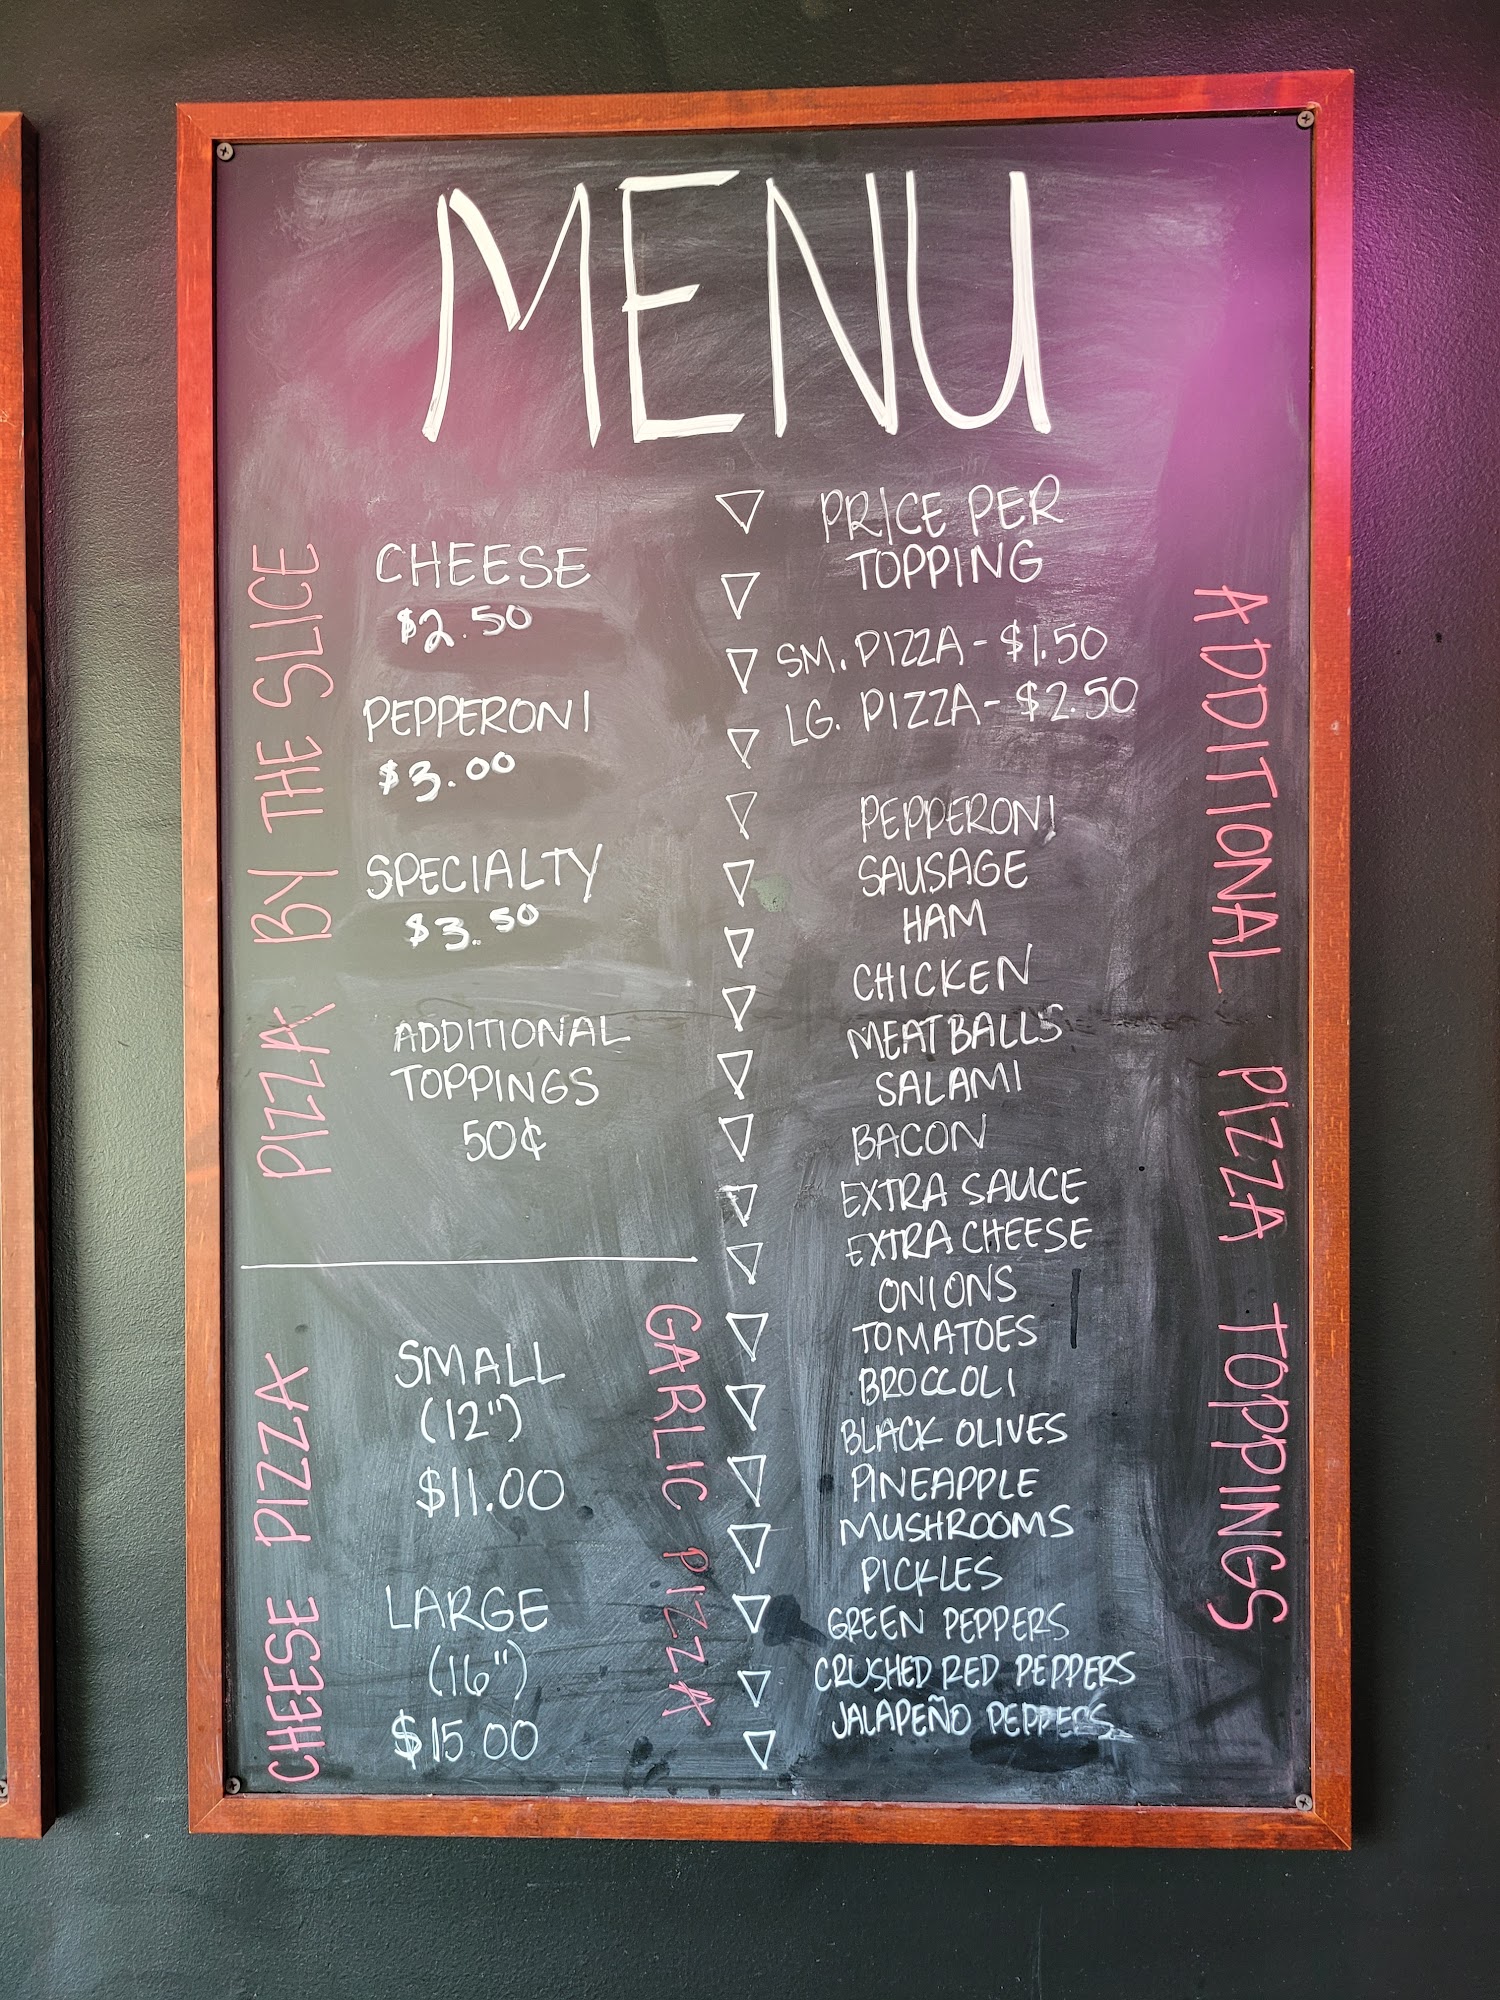 MENU
PIZZA BY THE SLICE
CHEESE
$2.50
PEPPERONI
$3.00
SPECIALTY
$3.50
ADDITIONAL
TOPPINGS
50¢
CHEESE PIZZA
SMALL
(12")
$11.00
LARGE
(16")
$15.00
GARLIC PIZZA
PRICE PER
TOPPING
SM. PIZZA - $1.50
LG. PIZZA - $2.50
PEPPERONI
SAUSAGE
HAM
CHICKEN
MEATBALLS
SALAMI
BACON
EXTRA SAUCE
EXTRA CHEESE
ONIONS
TOMATOES
BROCCOLI
BLACK OLIVES
PINEAPPLE
MUSHROOMS
PICKLES
GREEN PEPPERS
CRUSHED RED PEPPERS
JALAPEÑO PEPPERS
ADDITIONAL PIZZA TOPPINGS